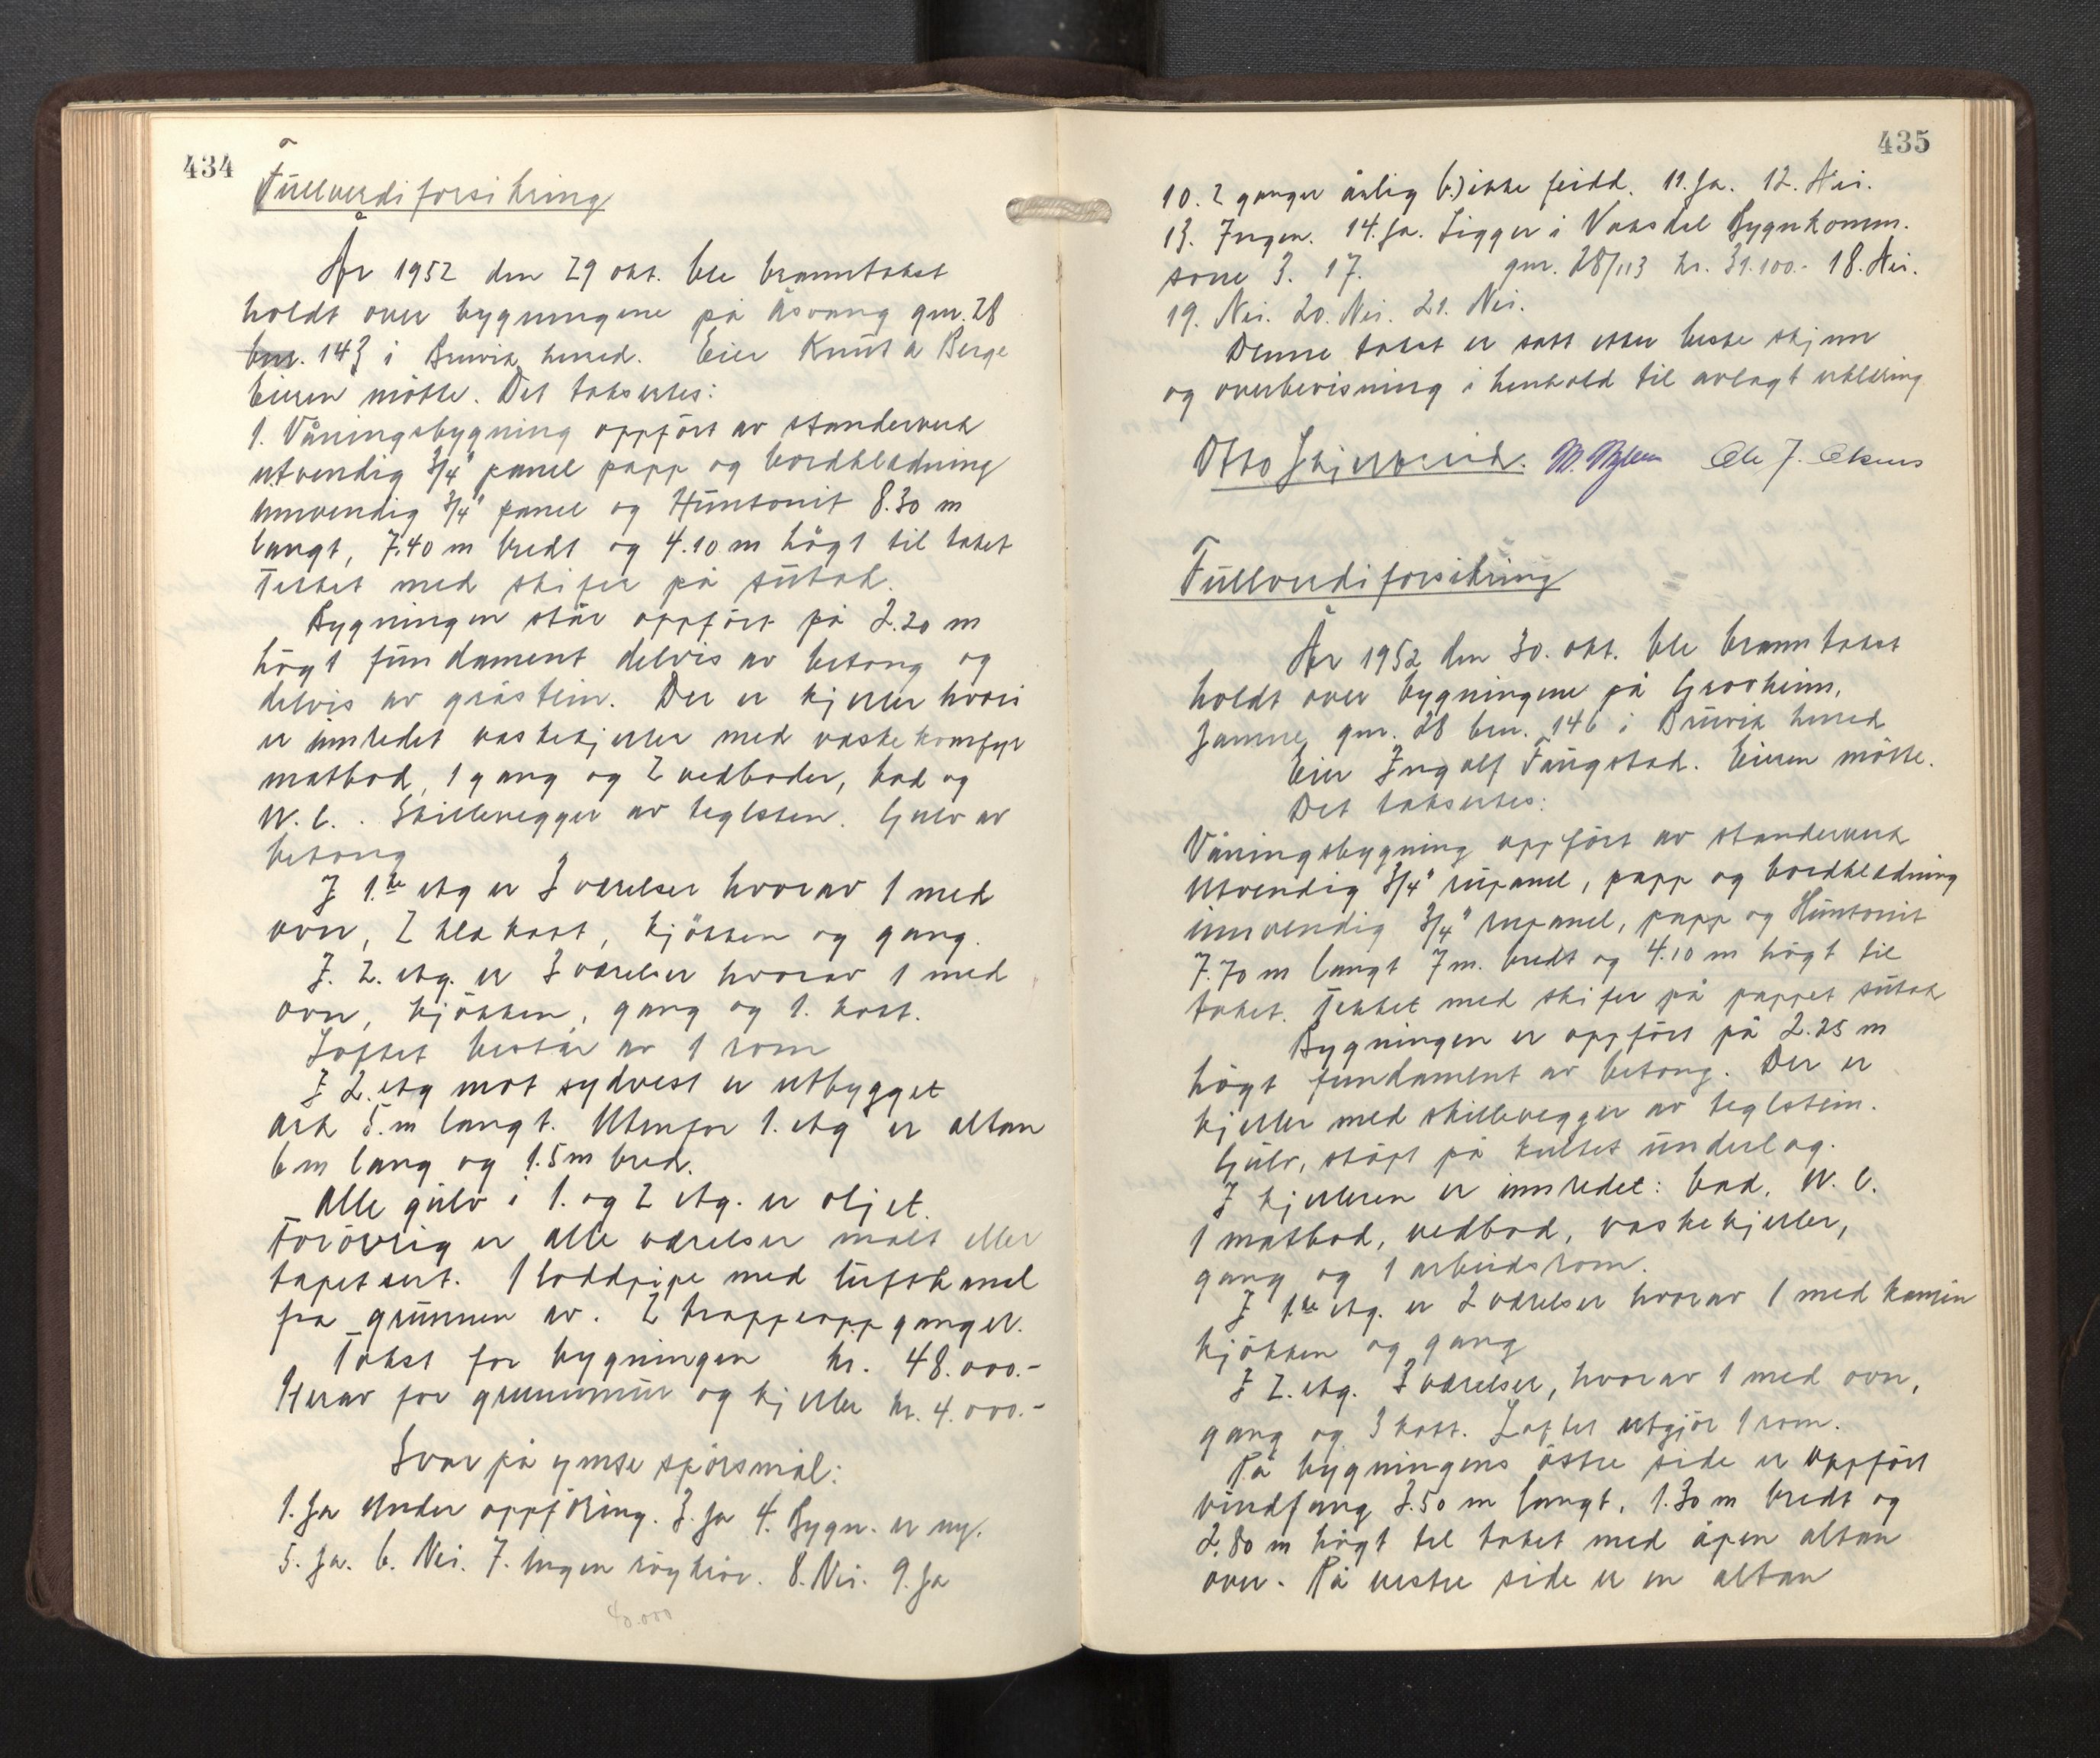 434
Fullverdiforsikring
År 1952 den 29 okt. ble branntakst
holdt over bygningene på Åsvang gnr. 28
bnr. 143 i Bruvik herred. Eier Knut A Berge
Eieren møtte. Det taksertes:
1. Våningsbygning oppført av standerverk
utvendig 3/4" panel papp og bordkledning
innvendig 3/4" panel og Huntonit 8.30 m
langt, 7.40 m bredt og 4.10 m högt til taket
Tekket med skifer på sutak.
Bygningen står oppført på 2.20 m
högt fundament delvis av betong og
delvis av gråstein. Der er kjeller hvori
er innredet vaskekjeller med vaskekomfyr
matbod, 1 gang og 2 vedboder, bad og
W.C.. Skillevegger av teglsten. Gulv av
betong
I 1.ste etg er 3 værelser hvorav 1 med
ovn, 2 klekott, kjökken og gang.
I. 2. etg. er 3 værelser hvorav 1 med
ovn, kjökken, gang og 1. kott.
Loftet består av 1 rom
I 2. etg mot sydvest er utbygget
ark 5.m langt. Utenfor 1. etg er altan
6 m lang og 1.5 m bred.
Alle gulv i 1. og 2 etg. er oljet.
Forövrig er alle værelser malt eller
tapetsert. 1 loddpipe med luftkanal
fra grunnen av. 2 trappeoppganger.
Takst for bygningen kr. 48.000.-
Herav for grunnmur og kjeller kr. 4.000.-
Svar på ymse spörsmål:
1. Ja Under oppföring. 3. Ja 4. Bygn. er ny.
5. Ja. 6. Nei. 7. Ingen röykrör. 8. Nei. 9. Ja
40.000
435
10. 2 ganger årlig b) ikke feidd. 11. Ja. 12. Nei.
13. Ingen. 14. Ja. Ligger i Vaksdal Bygnkomm.
sone 3. 17. gnr. 28/113 kr. 31.100.- 18. Nei.
19. Nei. 20. Nei. 21. Nei.
Denne takst er satt etter beste skjønn
og overbevisning i henhold til avlagt erklering
Otto Skjerveid. Ole J. Olsnes
Fullverdiforsikring
År 1952 den 30. okt. ble branntakst
holdt over bygningene på Grovheim,
Jamne gnr. 28 bnr. 146 i Bruvik herred
Eier Ingolf Faugstad. Eieren mötte.
Det taksertes:
Våningsbygning oppfört av standerverk
utvendig 3/4" rupanel, papp og bordkledning
innvendig 3/4" rupanel, papp og Huntonit
7.70 m langt 7 m. bredt og 4.10 m högt til
taket. Tekket med skifer på pappet sutak
Bygningen er oppfört på 2.25 m
högt fundament av betong. Der er
kjeller med skillevegger av teglstein.
Gulv, stöpt på kultet underlag.
I kjelleren er innredet: bad, W.C.
1 matbod, vedbod, vaskekjeller,
gang og 1 arbeidsrom.
I 1.ste etg. er 2 værelser hvorav 1 med kamin
kjökken og gang
I 2. etg. 3 værelser, hvorav 1 med ovn,
gang og 3 kott. Loftet utgjör 1 rom.
På bygningens östre side er oppfört
vindfang 3.50 m langt, 1.30 m bredt og
2.80 m högt til taket med åpen altan
over. På vestre side er en altan